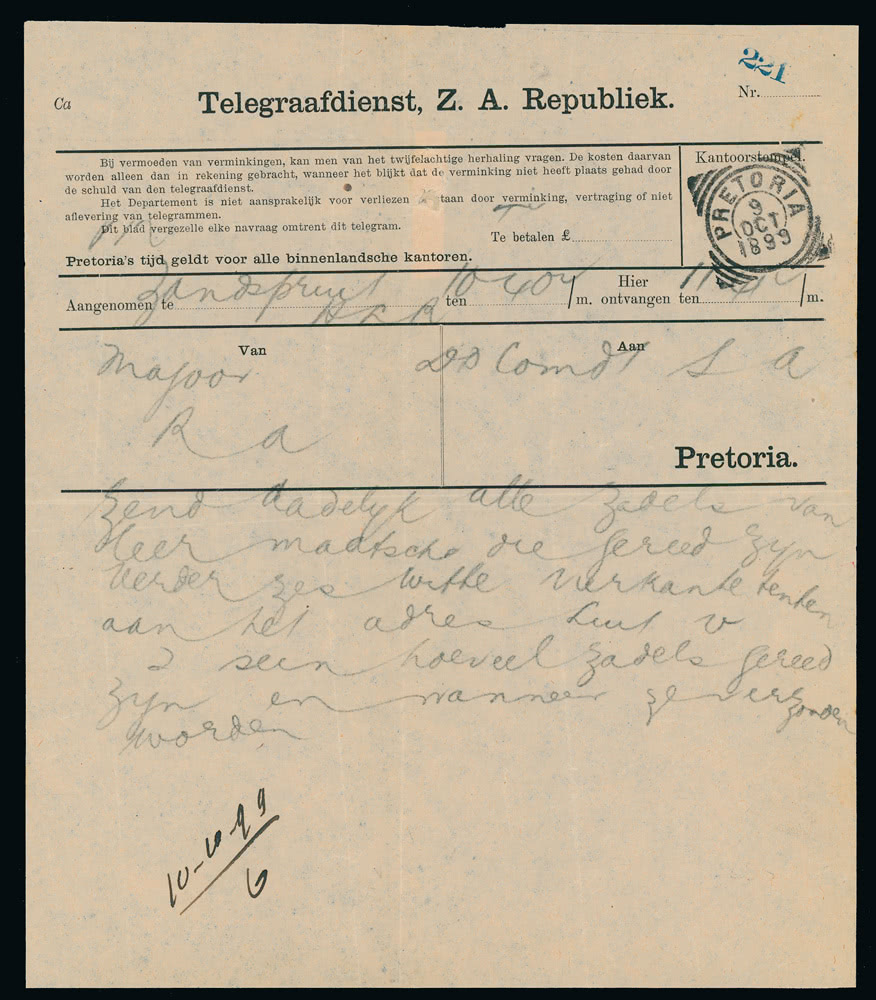 221
Ca
Telegraafdienst, Z. A. Republiek.
Nr.
Bij vermoeden van verminkingen, kan men van het twijfelachtige herhaling vragen. De kosten daarvan
worden alleen dan in rekening gebracht, wanneer het blijkt dat de verminking niet heeft plaats gehad door
de schuld van den telegraafdienst.
Het Departement is niet aansprakelijk voor verliezen taan door verminking, vertraging of niet
aflevering van telegrammen.
Dit blad vergezelle elke navraag omtrent dit telegram.
Te betalen £
Pretoria's tijd geldt voor alle binnenlandsche kantoren.
Kantoorstempel.
PRETORIA
9
OCT
1899
Aangenomen te Zandspruit ten 10 40 /m. Hier ontvangen ten 11 /m.
Van
Majoor
R a
Aan
DD Comdt S A
Pretoria.
Zend dadelyk alle zadels van
Heer maatsch die gereed zyn
Verder zes witte vierkante tenten
aan het adres Luit v
seen hoeveel zadels gereed
zyn en wanneer ze verzonden
worden
10-10-99
6